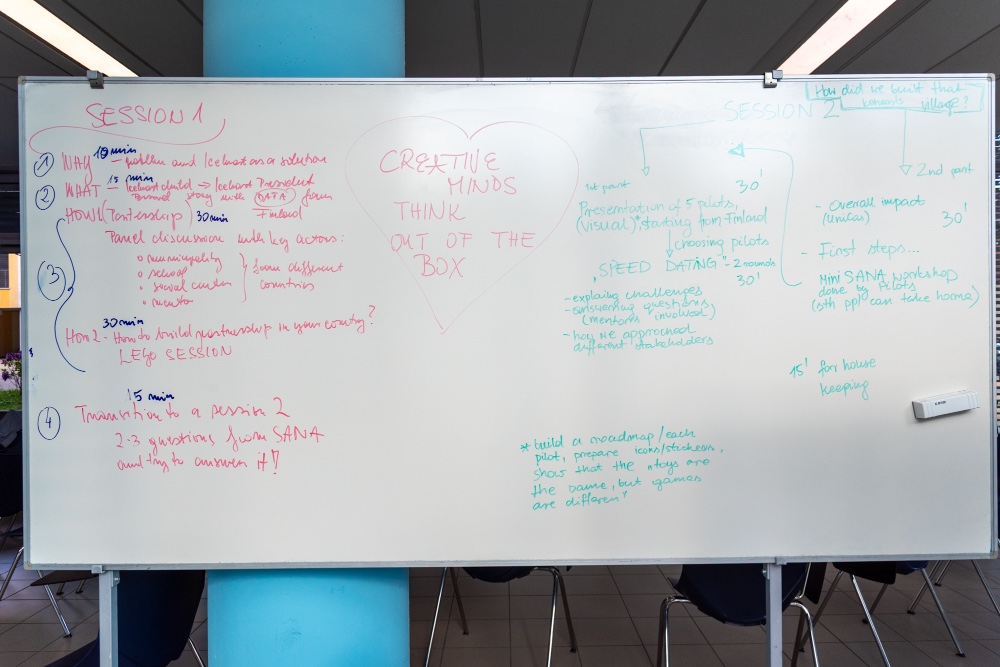 SESSION 1
① WHY 10 min - problem and Icehearts as a solution
② WHAT 15 min - Icehearts child → Icehearts President
Personal story with DATA from
Finland
HOW1 (Partnership) 30 min
③ Panel discussion with key actors:
o municipality
o school
o social center
o mentor
from different
countries
30 min
HOW 2 - How to build partnership in your country?
LEGO SESSION
15 min
④ Transition to a session 2
2-3 questions from SANA
and try to answer it!
CREATIVE
MINDS
THINK
OUT OF THE
BOX
SESSION 2
How did we built that
village?
1st part
30'
Presentation of 5 pilots,
(visual)*, starting from Finland
choosing pilots
"SPEED DATING" - 2 rounds
30'
- explaing challenges
- answering questions
(mentors involved)
- how we approched
different stakeholders
2nd part
- Overall impact
(Unicas)
30'
- First steps...
Mini SANA workshop
done by Pilots
(sth ppl can take home)
15' for house
keeping
* build a roadmap/each
pilot, prepare icons/stickers,
show that the "toys are
the same, but games
are differen"